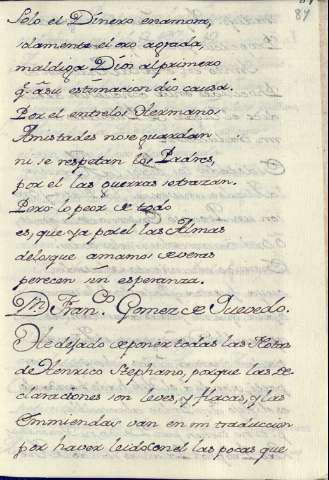 87
Solo el Dinero enamora,
solamente el oro agrada,
maldiga Dios al primero
q̃ a su estimacion dio causa.
Por el entre los Hermanos
Amistades no se guardan
ni se respetan los Padres,
por el las guerras se trazan.
Pero lo peor de todo
es, que ya por el las Almas
de los que amamos de veras
perecen sin esperanza.
Dn Fran.co Gomez de Quevedo.
He dejado de poner todas las Notas
de Henrico Stephano, porque las de-
claraciones son leves, y flacas, y las
Emmiendas van en mi traduccion
por haver leido con el las pocas que